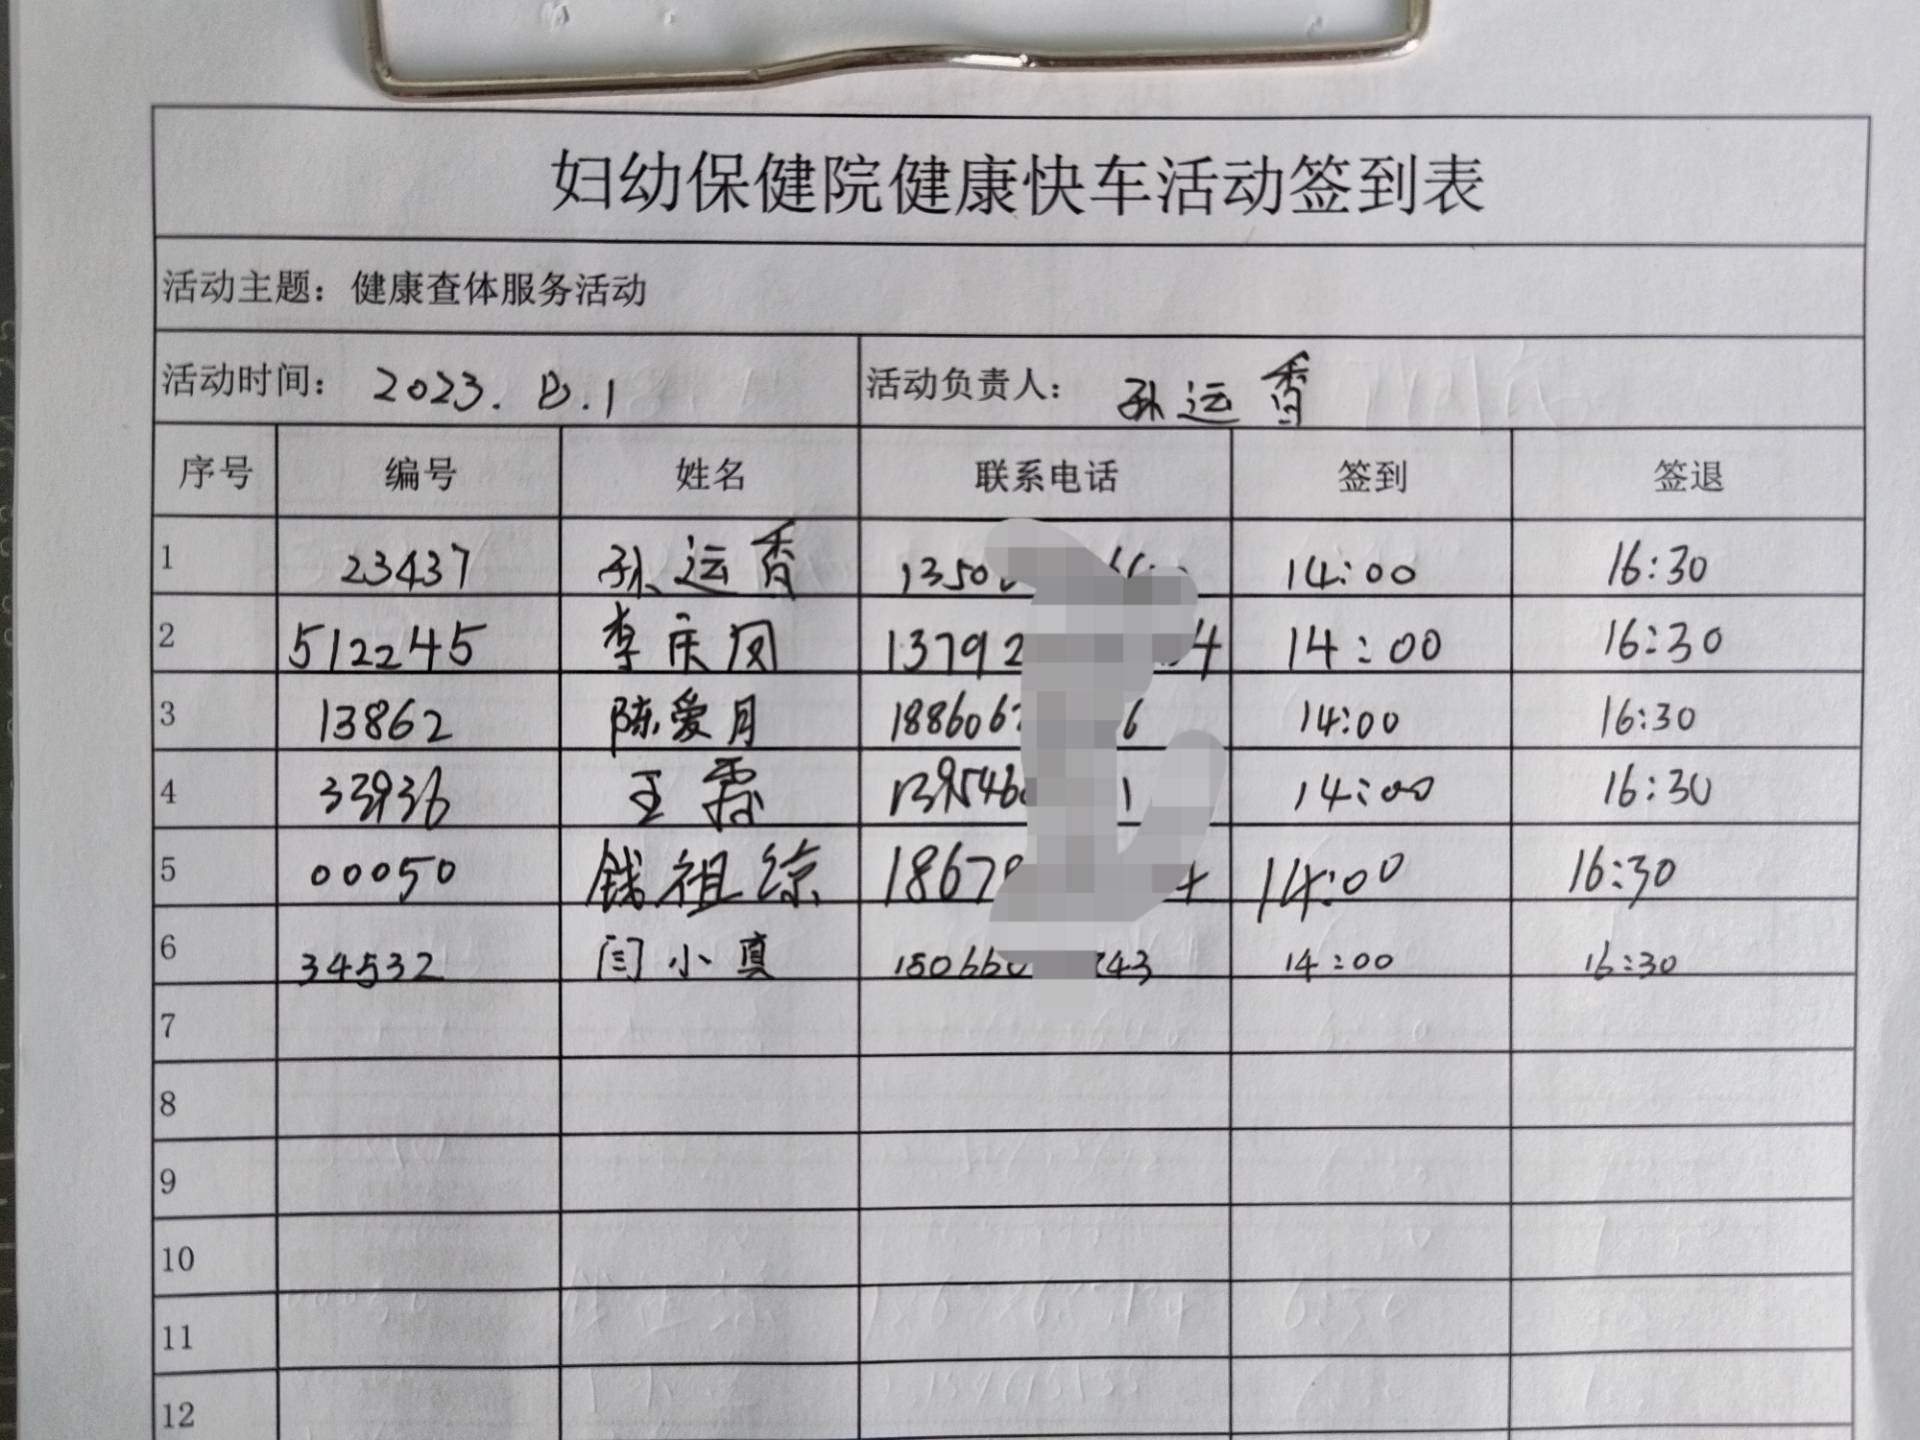 妇幼保健院健康快车活动签到表
活动主题：健康查体服务活动
活动时间： 2023. 活动负责人： 孙运香
序号 编号 姓名 联系电话 签到 签退
1 23437 孙运香 1350 14:00 16:30
2 512245 李庆凤 13792 4 14:00 16:30
3 13862 陈爱月 188606 6 14:00 16:30
4 33936 王霞 139546 1 14:00 16:30
5 00050 钱祖综 1867 4 14:00 16:30
6 34532 闫小真 150660 243 14:00 16:30
7
8
9
10
11
12